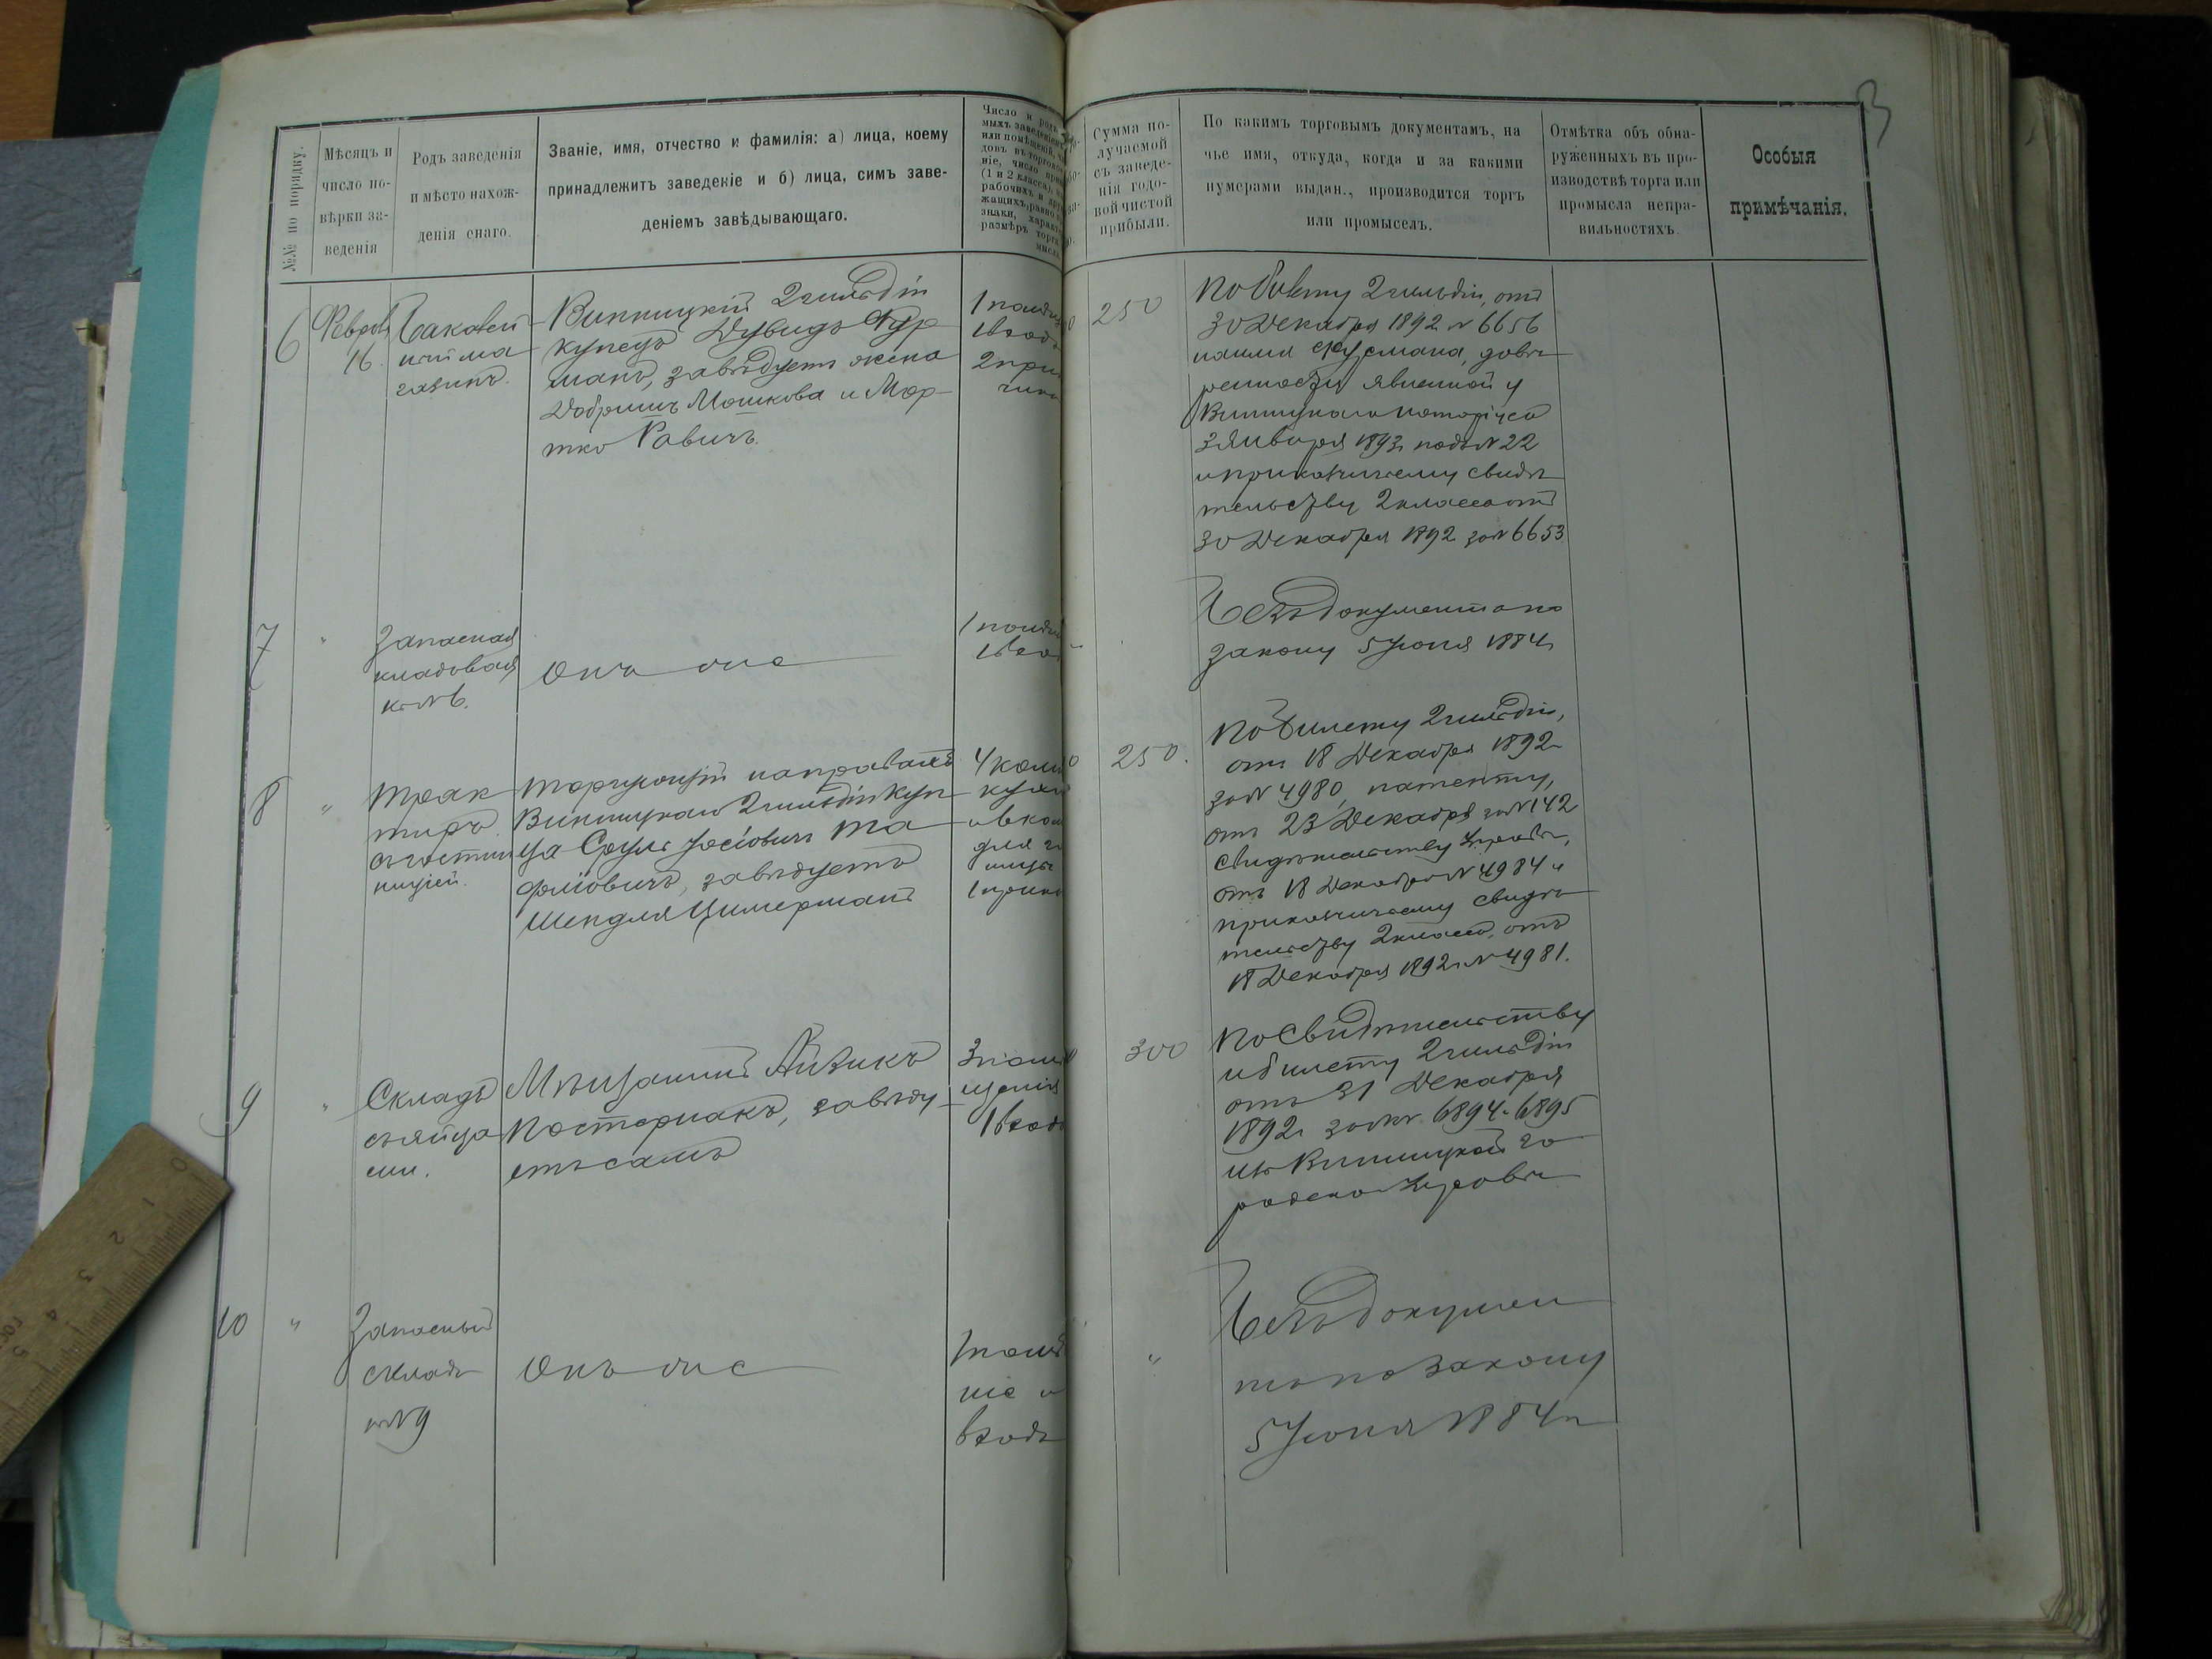 3
№№ по порядку.
Мѣсяцъ и
число по-
вѣрки за-
веденія
Родъ заведенія
и мѣсто нахож-
денія онаго.
Званіе, имя, отчество и фамилія: а) лица, коему
принадлежитъ заведеніе и б) лица, симъ заве-
деніемъ завѣдывающаго.
Число и родъ
мыхъ заведеніемъ
или помѣщеній,
довъ въ торговое
ніе, число
(1 и 2 класса),
рабочихъ и
жащихъ, равно
знаки,
размѣръ торга
Сумма по-
лучаемой
съ заведе-
нія годо-
вой чистой
прибыли.
По какимъ торговымъ документамъ, на
чье имя, откуда, когда и за какими
нумерами выдан., производится торгъ
или промыселъ.
Отмѣтка объ обна-
руженныхъ въ про-
изводствѣ торга или
промысла непра-
вильностяхъ.
Особыя
примѣчанія.
6
Феврал
16.
Бакалей
ный ма
газинъ.
Винницкій 2 гильдіи
купецъ Дувидъ Фур
манъ, завѣдуетъ жена
Добришъ Мошкова и Мор-
тко Равичъ.
1
1 вход
2 при
250
По билету 2 гильдіи, отъ
30 Декабря 1892 № 6656
на имя Фурмана, довѣ
ренности явленной у
Винницкаго нотаріуса
3 Января 1893 г. подъ № 22
и приказчичьему свидѣ
тельству 2 класса отъ
30 Декабря 1892 за № 6653
7
"
Запасная
кладовая
къ № 6.
Онъ же
1
1 вхо
Безъ документа по
закону 5 Іюня 1884 г.
8
"
Трак
тиръ
съ гостин
ницей.
Торгующій на правахъ
Винницкаго 2 гильдіи куп
ца Сруль Іосіовичъ
завѣдуетъ
Шендля Цимерманъ
4 ком
кухн
для
1 прик
250.
По билету 2 гильдіи,
отъ 18 Декабря 1892 г.
за № 4980, патенту,
отъ 23 Декабря за № 142
свидѣтельству Управы,
отъ 18 Декабря № 4984 и
приказчичьему свидѣ
тельству 2 класса, отъ
18 Декабря 1892 г. № 4981.
9
"
Складъ
съ яйца
ми.
Мѣщанинъ Айзикъ
Пастернакъ, завѣду
етъ самъ
3 помѣ
щенія
1 входъ
300
По свидѣтельству
и билету 2 гильдіи
отъ 31 Декабря
1892 г. за №№ 6894 и 6895
изъ Винницкой го
родской Управы
10
"
Запасный
складъ
къ № 9
Онъ же
1 помѣ
ніе и
входъ
"
Безъ докумен
та по закону
5 Іюня 1884 г.
0
1
2
3
4
5